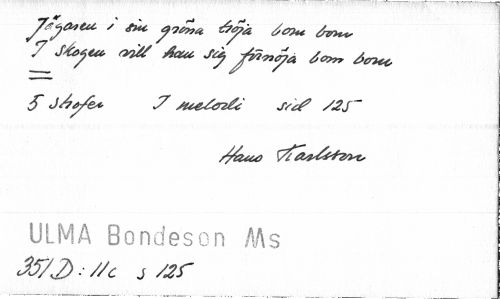 Jägaren i sin gröna tröja bom bom
I skogen vill han sig förnöja bom bom
5 strofer I melodi sid 125
Hans Karlsson
ULMA Bondeson Ms
351 D:11c s 125